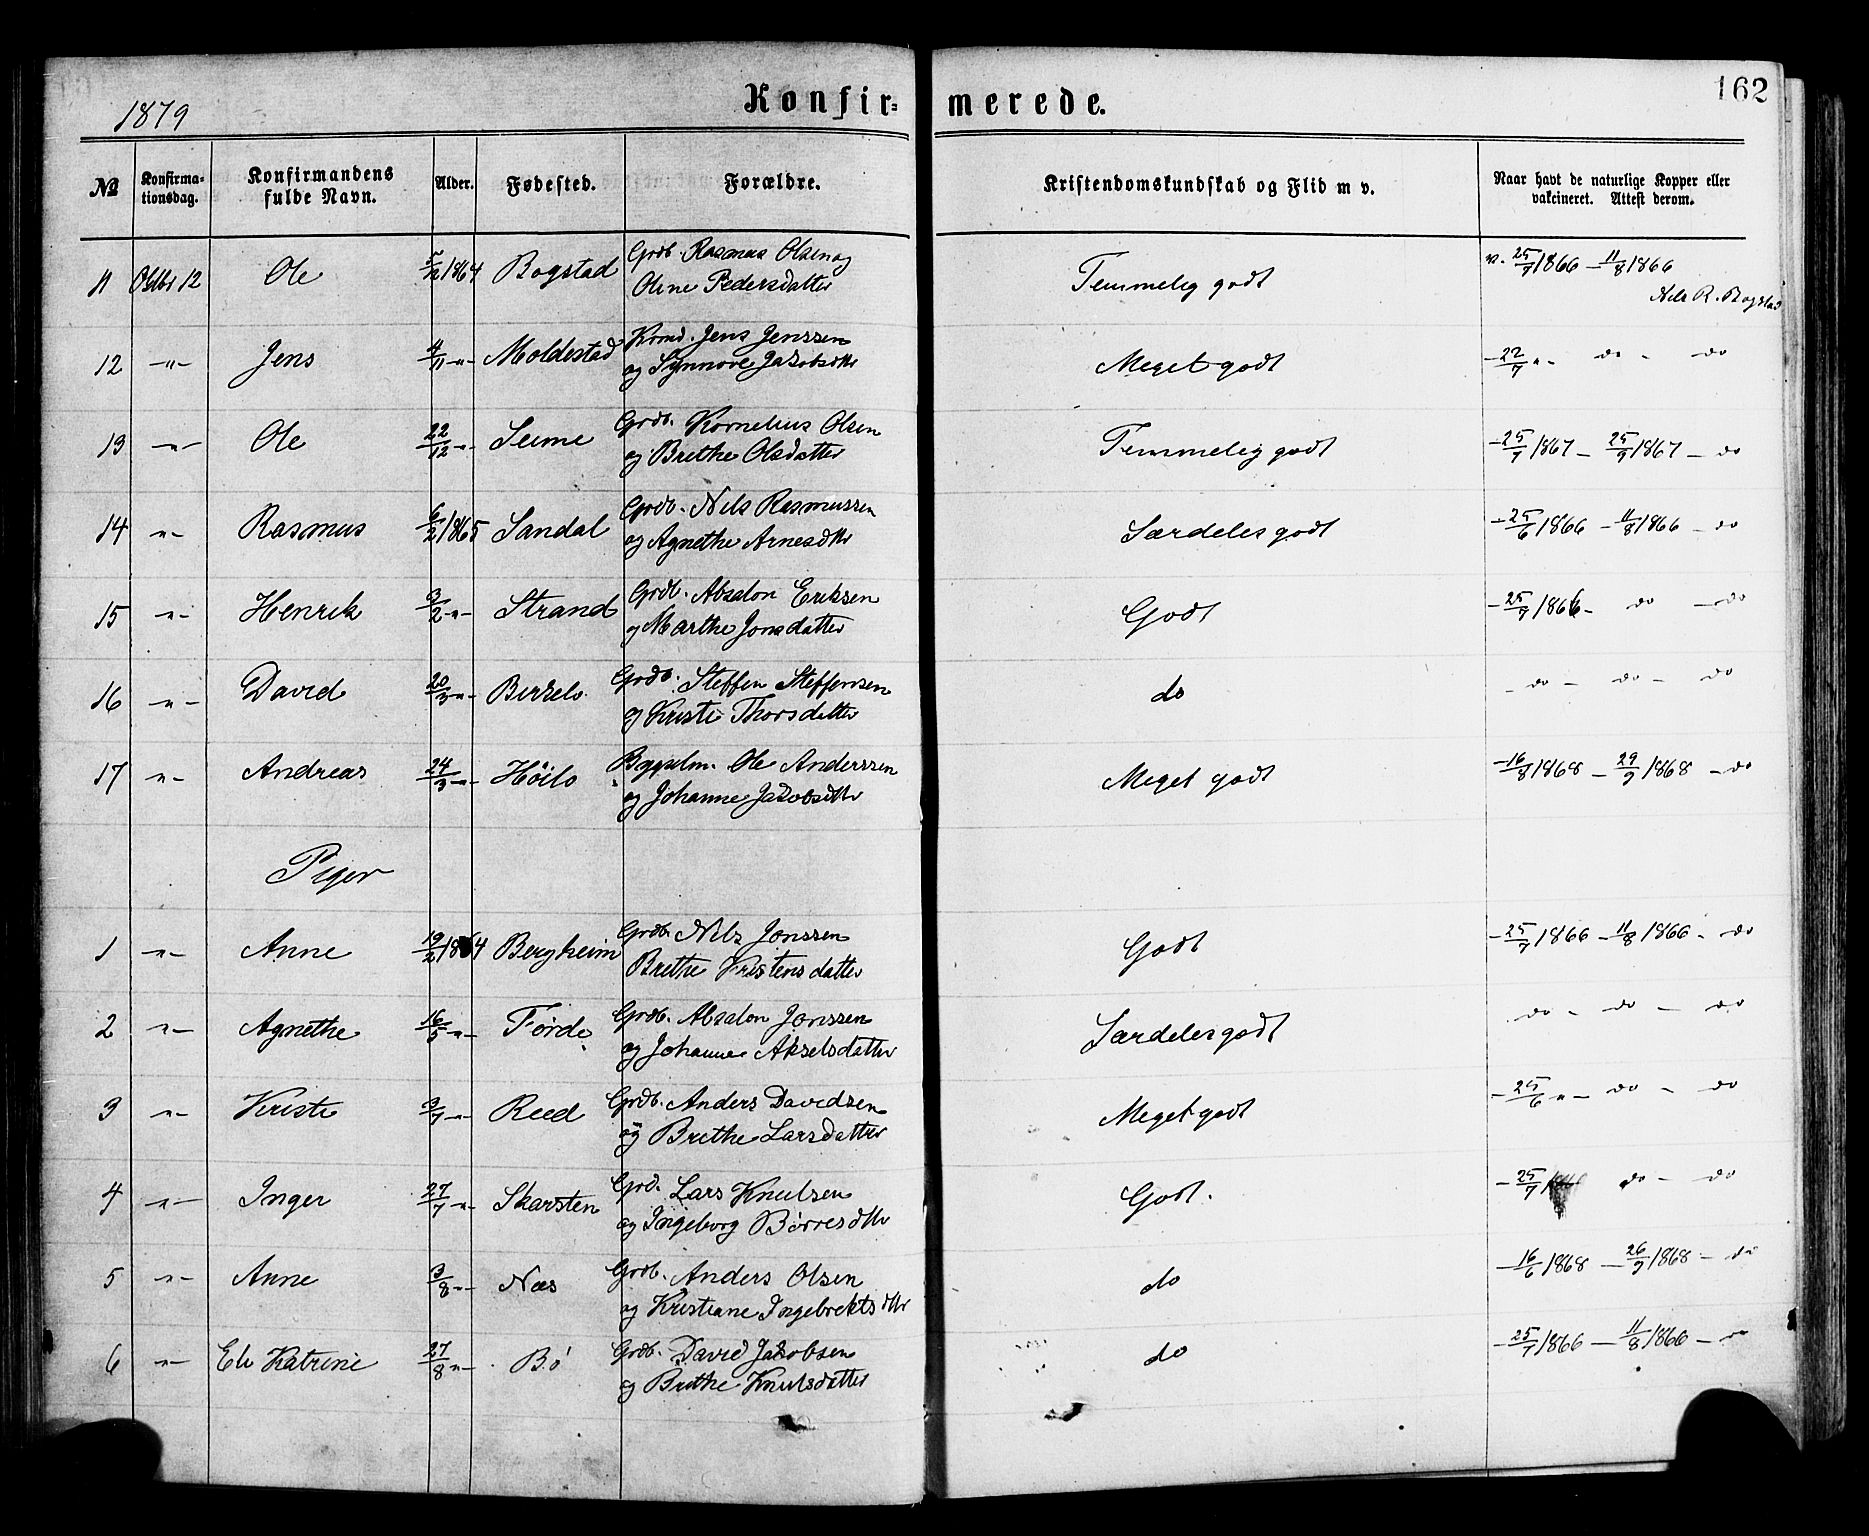 1879
Konfir= merede.
162
№ Konfirma-tionsdag. Konfirmandens fulde Navn. Alder. Fødested. Forældre. Kristendomskundskab og Flid m v. Naar havt de naturlige Kopper eller vakcineret. Attest derom.
11 Oktbr 12 Ole 1864 Bogstad Grdb. Rasmus Olsen og Temmelig godt v. 25/7 1866 – 11/8 1866
Oline Pedersdatter Nils R. Bogstad
12 –"– Jens 4/11 –"– Moldestad Kbmd. Jens Jenssen Meget godt – 22/7 "– do – do
og Synnove Jakobsdtr
13 –"– Ole 22/12 –"– Seime Grdb. Kornelius Olsen Temmelig godt – 25/7 1867 – 25/9 1867 – do
og Brethe Olsdatter
14 –"– Rasmus 6/2 1865 Sandal Grdb. Nils Rasmussen Særdeles godt – 25/6 1866 – 11/8 1866 – do
og Agnethe Arnesdtr
15 –"– Henrik 3/2 –"– Strand Grdb. Absalon Eriksen Godt – 25/7 1866 – do – do
og Marthe Jonsdatter
16 –"– David 20/3 –"– Birkelo Grdb. Steffen Steffensen do – do – do – do
og Kristi Thorsdatter
17 –"– Andreas 24/3 –"– Höilo Bygselm. Ole Anderssen Meget godt – 16/8 1868 – 29/9 1868 – do
og Johanne Jakobsdtr
Piger
1 –"– Anne 19/2 1864 Bergheim Grdb. Nils Jonssen Godt – 25/7 1866 – 11/8 1866 – do
Brethe Kristensdatter
2 –"– Agnethe 16/5 –"– Førde Grdb. Absalon Jonssen Særdeles godt do – do – do
og Johanne Akselsdatter
3 –"– Kristi 9/7 –"– Reed Grdb. Anders Davidsen Meget godt – 25/6 "– do – do
og Brethe Larsdatter
4 –"– Inger 27/7 –"– Skarsten Grd. Lars Knutsen Godt. – 25/7 do – do
og Ingeborg Børresdtr
5 –"– Anne 3/8 –"– Næs Grdb. Anders Olsen do – 16/6 1868 – 26/9 1868 – do
og Kristiane Ingebrektsdtr
6 –"– Eli Katrine 27/8 –"– Bö Grdb. David Jakobsen do – 25/7 1866 – 11/8 1866 – do
og Brithe Knutsdatter